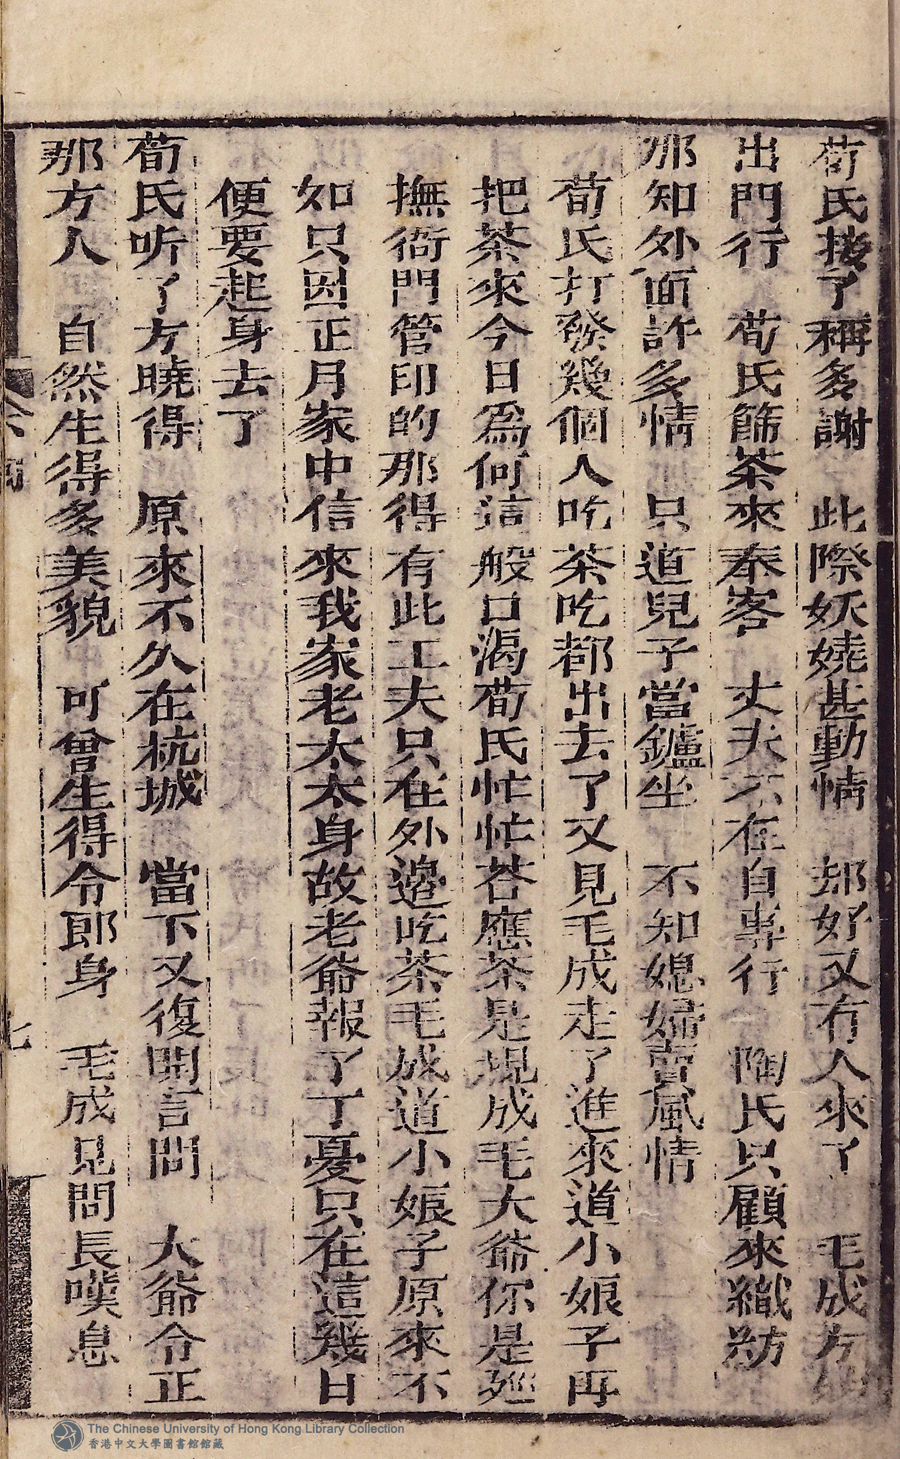 荀氏接了稱多謝　此際妖嬈甚動情　却好又有人來了　毛成方
出門行　荀氏篩茶來奉客　丈夫不在自專行　陶氏只顧來織紡
那知外面許多情　只道兒子當鑪坐　不知媳婦賣風情
荀氏打發幾個人吃茶吃都出去了又見毛成走了進來道小娘子再
把茶來今日爲何這般口渴荀氏忙忙荅應茶是現成毛大爺你是廵
撫衙門管印的那得有此工夫只在外邉吃茶毛成道小娘子原來不
如只因正月家中信來我家老太太身故老爺報了丁憂只在這幾日
便要起身去了
荀氏听了方曉得　原來不久在杭城　當下又復開言問　大爺令正
那方人　自然生得多美貌　可曾生得令郎身　毛成見問長嘆息
七
The Chinese University of Hong Kong Library Collection
香港中文大學圖書館館藏